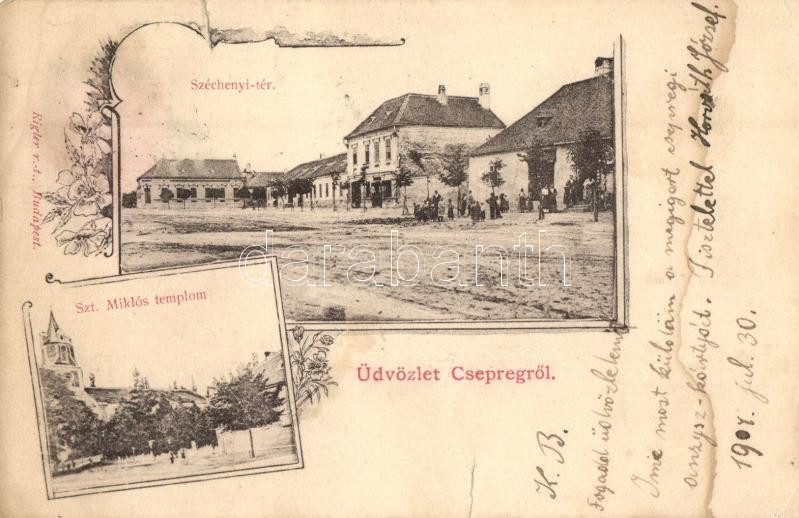 Széchenyi-tér.
Rigler r.-t., Budapest.
Szt. Miklós templom
Üdvözlet Csepregről.
darabanth
K. B.
Fogadd üdvözletem
Ime most küldöm a megigért csepregi
Tisztelettel Horváth József.
1901. jul. 30.